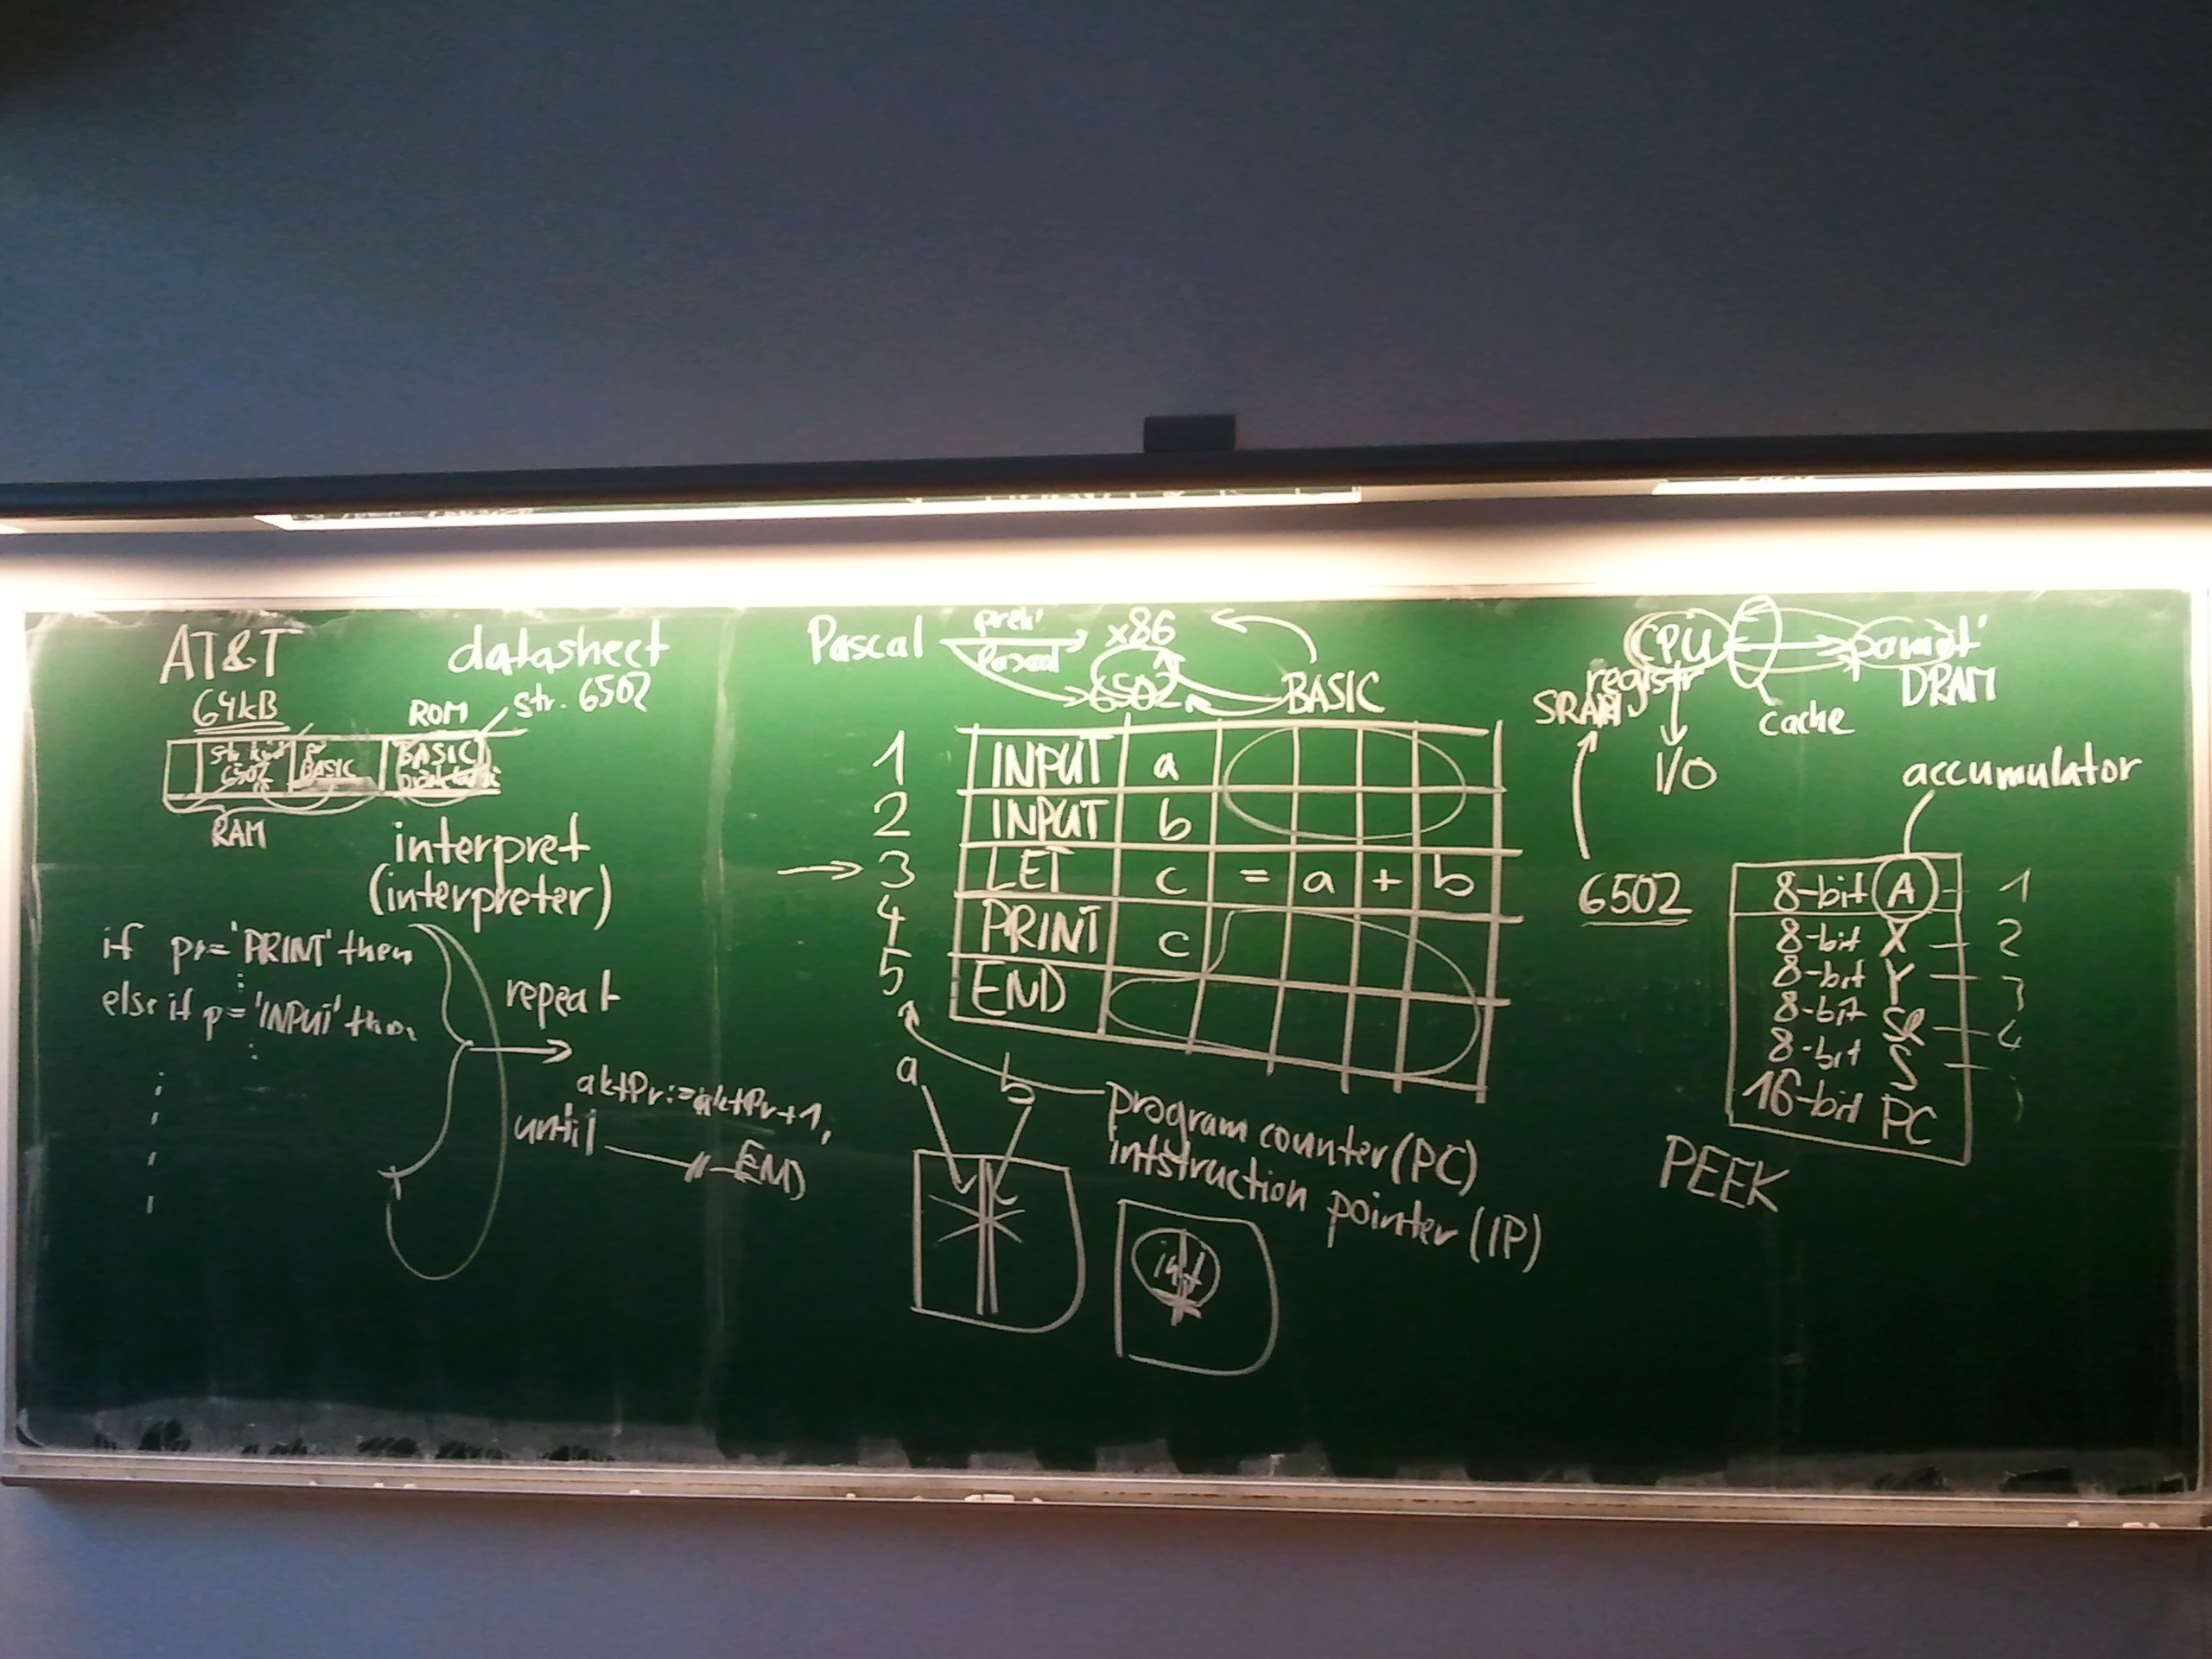 AT&T
datasheet
64kB
ROM
str. 6502
6502
BASIC
BASIC
RAM
interpret
(interpreter)
if pr='PRINT' then
else if p='INPUT' then
repeat
aktPr:=aktPr+1,
until
END
Pascal
x86
6502
BASIC
1 INPUT a
2 INPUT b
3 LET c = a + b
4 PRINT c
5 END
a b
program counter (PC)
intstruction pointer (IP)
CPU
paměť
registr
SRAM
DRAM
cache
I/O
accumulator
6502
8-bit A 1
8-bit X 2
8-bit Y 3
8-bit SR 4
8-bit S
16-bit PC
PEEK